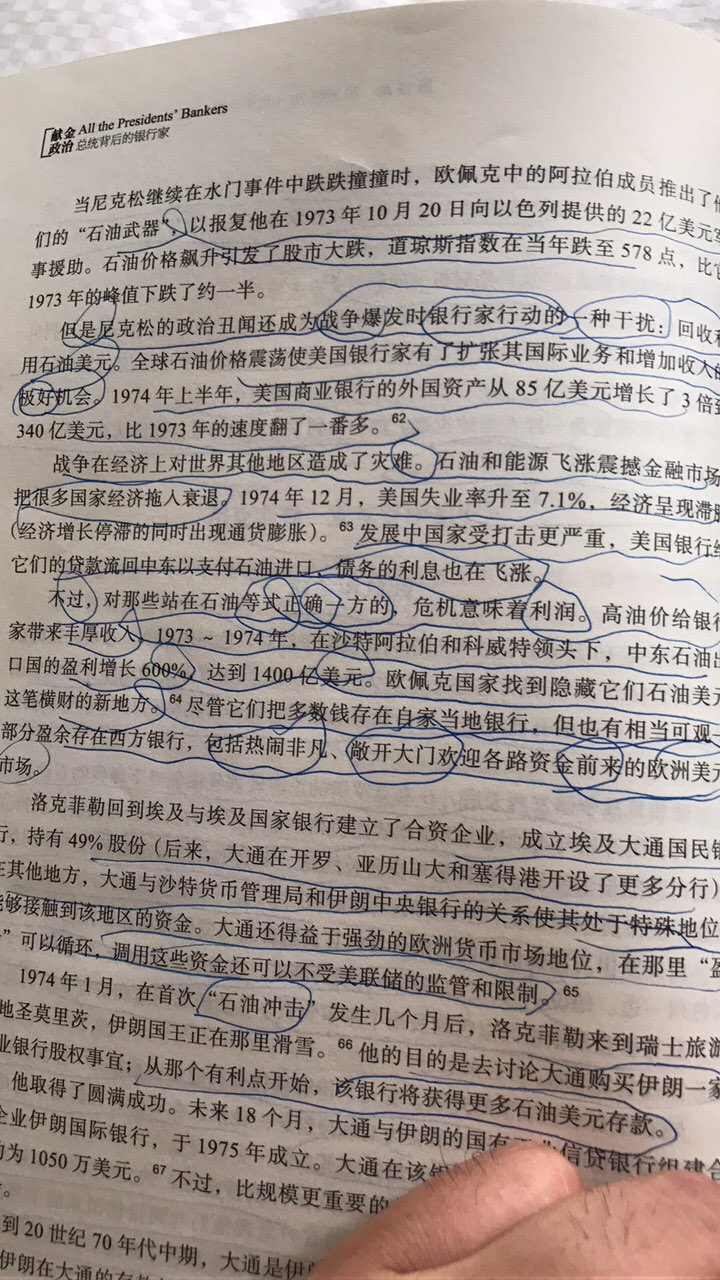 献金 All the Presidents' Bankers
政治 总统背后的银行家
当尼克松继续在水门事件中跌跌撞撞时，欧佩克中的阿拉伯成员推出了他
们的“石油武器”，以报复他在 1973 年 10 月 20 日向以色列提供的 22 亿美元军
事援助。石油价格飙升引发了股市大跌，道琼斯指数在当年跌至 578 点，比
1973 年的峰值下跌了约一半。
但是尼克松的政治丑闻还成为战争爆发时银行家行动的一种干扰：回收
用石油美元。全球石油价格震荡使美国银行家有了扩张其国际业务和增加收入的
极好机会。1974 年上半年，美国商业银行的外国资产从 85 亿美元增长了 3 倍到
340 亿美元，比 1973 年的速度翻了一番多。62
战争在经济上对世界其他地区造成了灾难。石油和能源飞涨震撼金融市场
把很多国家经济拖入衰退。1974 年 12 月，美国失业率升至 7.1%，经济呈现滞胀
（经济增长停滞的同时出现通货膨胀）。63 发展中国家受打击更严重，美国银行给
它们的贷款流回中东以支付石油进口，债务的利息也在飞涨。
不过，对那些站在石油等式正确一方的，危机意味着利润。高油价给银行
家带来丰厚收入，1973 ~ 1974 年，在沙特阿拉伯和科威特领头下，中东石油出
口国的盈利增长 600%，达到 1400 亿美元。欧佩克国家找到隐藏它们石油美元
这笔横财的新地方。64 尽管它们把多数钱存在自家当地银行，但也有相当可观一
部分盈余存在西方银行，包括热闹非凡、敞开大门欢迎各路资金前来的欧洲美元
市场。
洛克菲勒回到埃及与埃及国家银行建立了合资企业，成立埃及大通国民银
行，持有 49% 股份（后来，大通在开罗、亚历山大和塞得港开设了更多分行）
在其他地方，大通与沙特货币管理局和伊朗中央银行的关系使其处于特殊地位
能够接触到该地区的资金。大通还得益于强劲的欧洲货币市场地位，在那里“盈
”可以循环，调用这些资金还可以不受美联储的监管和限制。65
1974 年 1 月，在首次“石油冲击”发生几个月后，洛克菲勒来到瑞士旅游
地圣莫里茨，伊朗国王正在那里滑雪。66 他的目的是去讨论大通购买伊朗一家
业银行股权事宜；从那个有利点开始，该银行将获得更多石油美元存款。
他取得了圆满成功。未来 18 个月，大通与伊朗的国有 信贷银行组建合
企业伊朗国际银行，于 1975 年成立。大通在该
为 1050 万美元。67 不过，比规模更重要的
。
到 20 世纪 70 年代中期，大通是伊
伊朗在大通的存款